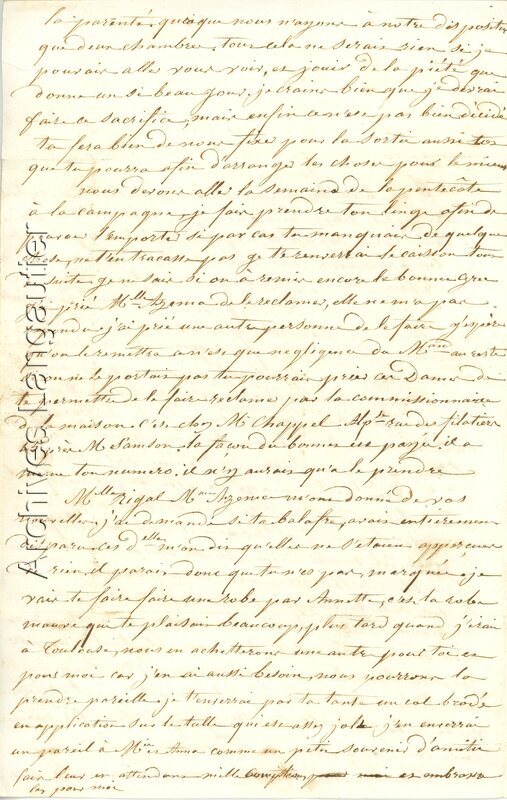 la parenté, quoique nous n'ayons à notre disposition
que deux chambres, tous cela ne serais rien si je
pouvais aller vous voir, et jouir de la piété que
donne un si beau jour, je crains bien que je devrai
faire ce sacrifice, mais enfin ce n'est pas bien décidé
tu fera bien de nous fixé pour la sortie aussi tos
que tu pourra afin d'arranger les choses pour le mieux
nous devons allé la semaine de la pentecôte
à la campagne, je fais prendre ton linge afin de
pouvoir l'emporté si par cas tu manquais de quelque
chose, ne t'en tracasse pas je te renverrai le caisson tous
suite, je ne sais si on a remis encore le bonnet que
prié Mlle Azema de le réclamer, elle ne m'a pas
j'ai prié une autre personne de le faire j'espère
qu'on le remettra ce n'est que négligence du Mme au reste
on ne le portais pas tu pourrais prier ces Dames de
te permettre de la faire réclamé par la commissionnaire
de la maison c'est chez Mr Chappel rue des filatiers
Mr Samson la façon du bonnet est payée. il a
même ton numero. il n'y aurais qu'a le prendre
Mlle Rigal Mme Azema m'ons donné de vos
nouvelles, j'ai demandé si ta balafre, avais entièrement
disparu, ces dlle m'on dis qu'elles ne s'étaient appercues
rien, il parais donc que tu n'es pas, marquée, je
vais te faire faire une robe par Annette, c'est la robe
mauve que te plaisais beaucoup, plus tard quand j'irai
à Toulouse, nous en achetterons une autre pour toi et
pour moi car j'en ai aussi besoin, nous pourrons la
prendre pareille, je t'enverrai par ta tante un col brodé
en application sur le tulle qui est assez joli j'en enverrai
un pareil à Mlles Anna comme un petit souvenir d'amitié
fais leur en attendans mille complimens et embrasse
les pour moi
Archives Langsufier